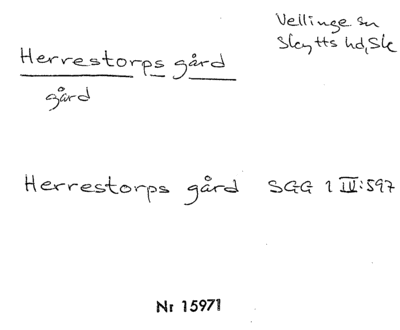 Vellinge sn
Skytts hd, Sk
Herrestorps gård
gård
Herrestorps gård SGG 1 IV:597
Nr 15971